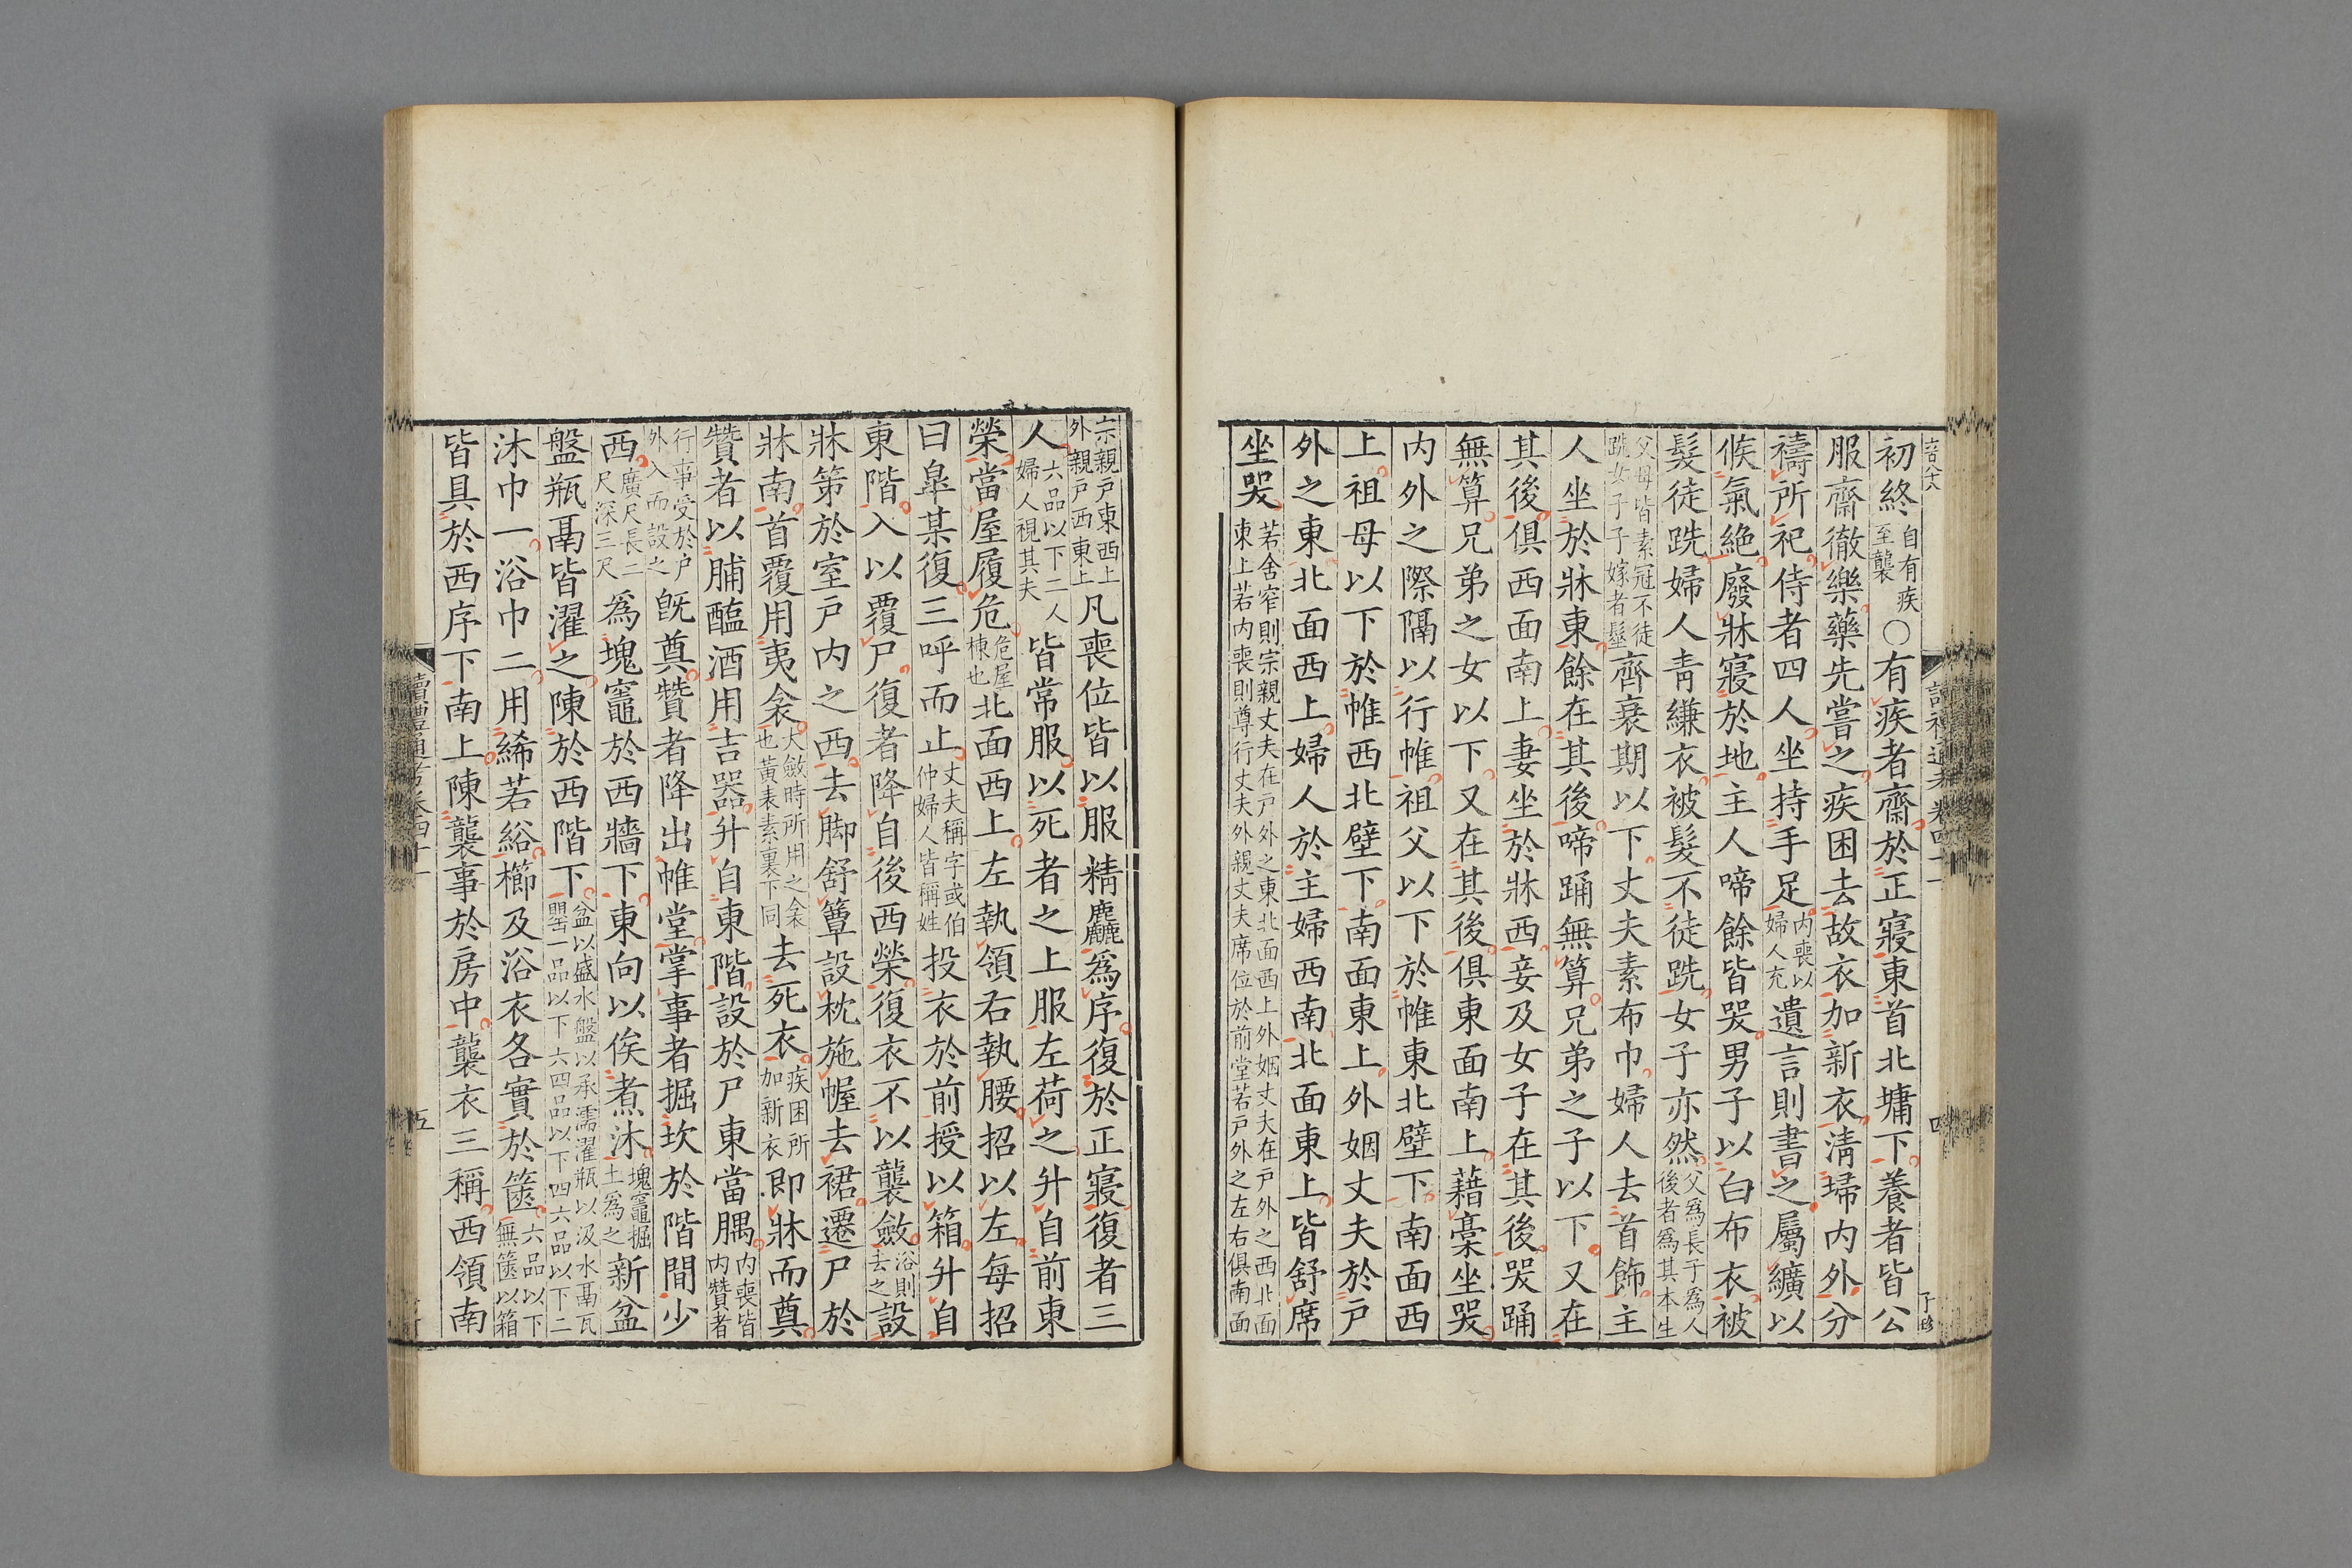 初終自有疾至襲〇有疾者齋於正寢東首北墉下養者皆公
服齋徹樂藥先嘗之疾困去故衣加新衣清埽内外分
禱所祀侍者四人坐持手足内喪以婦人充遺言則書之屬纊以
候氣絶廢牀寢於地主人啼餘皆哭男子以白布衣被
髮徒跣婦人青縑衣被髮不徒跣女子亦然父爲長子爲人後者爲其本生
父母皆素冠不徒跣女子子嫁者髽齊衰期以下丈夫素布巾婦人去首飾主
人坐於牀東餘在其後啼踊無算兄弟之子以下又在
其後俱西面南上妻坐於牀西妾及女子在其後哭踊
無算兄弟之女以下又在其後俱東面南上藉槀坐哭
内外之際隔以行帷祖父以下於帷東北壁下南面西
上祖母以下於帷西北壁下南面東上外姻丈夫於戸
外之東北面西上婦人於主婦西南北面東上皆舒席
坐哭若舍窄則宗親丈夫在戸外之東北面西上外姻丈夫在戸外之西北面東上若内喪則尊行丈夫外親丈夫席位於前堂若戸外之左右俱南面
宗親戸東西上外親戸西東上凡喪位皆以服精麤爲序復於正寢復者三
人六品以下二人婦人視其夫皆常服以死者之上服左荷之升自前東
榮當屋履危危屋棟也北面西上左執領右執腰招以左每招
曰皐某復三呼而止丈夫稱字或伯仲婦人皆稱姓投衣於前授以箱升自
東階入以覆尸復者降自後西榮復衣不以襲斂浴則去之設
牀第於室戸内之西去脚舒簟設枕施幄去裙遷尸於
牀南首覆用夷衾大斂時所用之衾也黄表素裏下同去死衣疾困所加新衣即牀而奠
贊者以脯醢酒用吉器升自東階設於尸東當腢内喪皆内贊者
行事受於戸外入而設之既奠贊者降出帷堂掌事者掘坎於階間少
西廣尺長二尺深三尺爲塊竈於西牆下東向以俟煮沐塊竈掘土爲之新盆
盤瓶鬲皆濯之陳於西階下盆以盛水盤以承濡濯瓶以汲水鬲瓦罌一品以下六四品以下四六品以下二
沐巾一浴巾二用絺若綌櫛及浴衣各實於篋六品以下無篋以箱
皆具於西序下南上陳襲事於房中襲衣三稱西領南
讀禮通考卷四十一
五
四